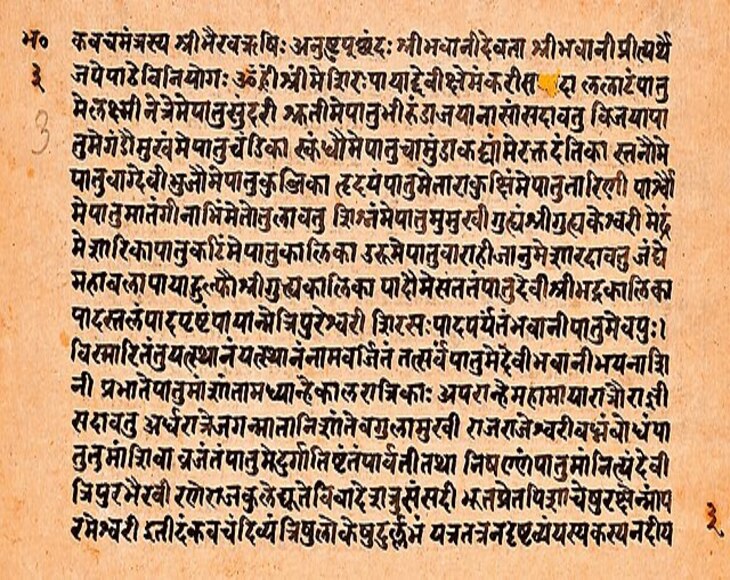 भ० कवचमंत्रस्य श्रीभैरवऋषिः अनुष्टुप्छंदः श्रीभवानीदेवता श्रीभवानीप्रीत्यर्थे
३ जपेपाठेविनियोगः ॐह्रींश्रींमेशिरःपायाद्देवीक्षेमंकरीस दा ललाटंपातु
3 मेलक्ष्मीनेत्रेमेपातुसुंदरी श्रुतीमेपातुभीरुंडाजयानासांसदावतु विजयापा
तुमेगंडौमुखंमेपातुचंडिका स्कंधौमेपातुचामुंडाकक्षामेरक्तदंतिका स्तनौमे
पातुवाग्देवीभुजौमेपातुकुब्जिका हृदयंपातुमेताराकुक्षिंमेपातुतारिणी पार्श्वौ
मेपातुमातंगीनाभिंमेतोतुलावतु शिश्नंमेपातुसुमुखीगुह्यंश्रीगुह्यकेश्वरी मेढ्रं
मेशारिकापातुकटिंमेपातुकालिका उरूमेपातुवाराहीजानुमेशारदावतु जंघे
महाबलापायाद्गुल्फौश्रीगुह्यकालिका पादौमेसततंपातुदेवीश्रीभद्रकालिका
पादस्तलंपादपृष्ठंपायान्मेत्रिपुरेश्वरी शिरसःपादपर्यंतंभवानीपातुमेवपुः।
विस्मारितंतुयत्स्थानंयत्स्थानंनामवर्जितं तत्सर्वंपातुमेदेवीभवानीभयनाशि
नी प्रभातेपातुमांशांतामध्यान्हेकालरात्रिकाः अपरान्हेमहामायारात्रौराज्ञी
सदावतु अर्धरात्रेजगन्मातानिशांतेवगुलामुखी राजराजेश्वरी पा
तुतुमांशिवा व्रजंतंपातुमेदुर्गातिष्ठंतंपार्वतीतथा निषण्णंपातुमांनित्यंदेवी
त्रिपुरभैरवी रणेराजकुलेद्यूतेविवादेशत्रुसंसदी भूतप्रेतपिशाचेषुरक्षेन्मांप
रमेश्वरी इतीदंकवचंदिव्यंत्रिषुलोकेषुदुर्लभं यत्रतत्रनदृष्टव्यंयस्यकस्यनदीय
३